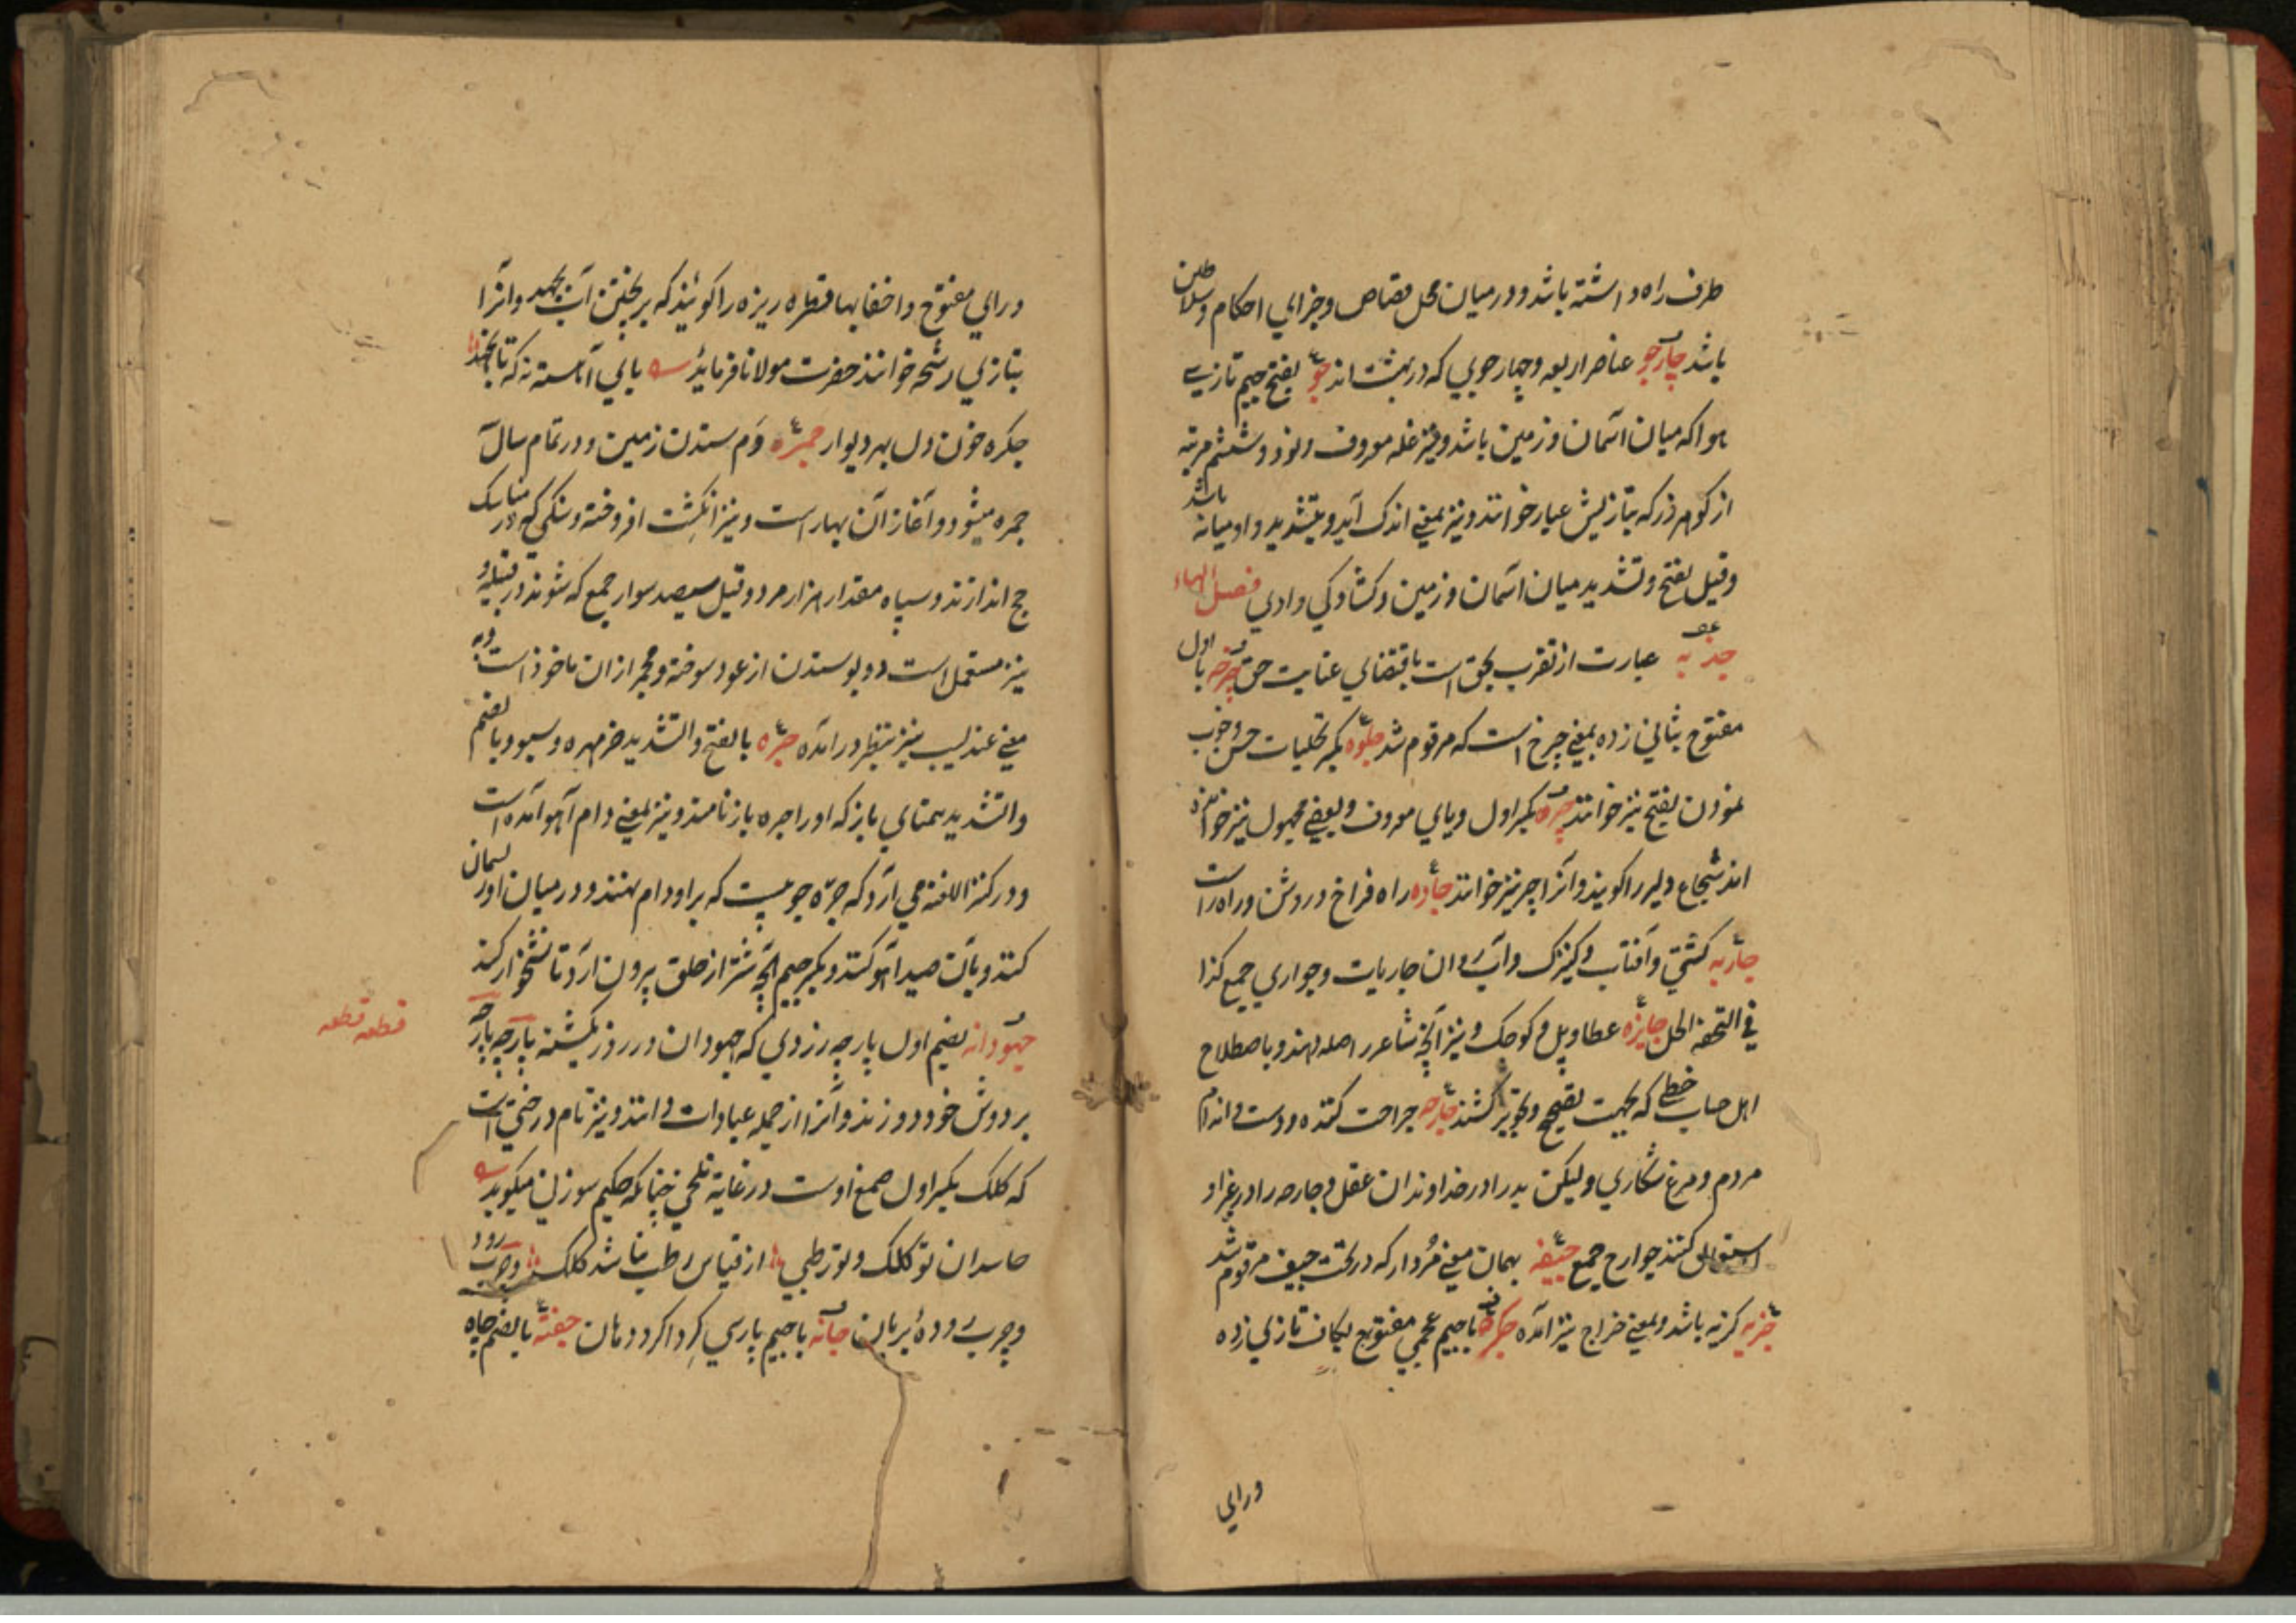 طرف راه داشته باشد و در میان محل قصاص و جزای احکام سلاطین
باشد چارجو عناصر اربعه و چهار جویی که در بهشت اند جو بفتح جیم تازی
هوا که میان آسمان و زمین باشد و نیز غله معروف و نود و ششم مرتبه
از کوهر زر که بتازیش عیار خوانند و نیز بمعنی اندک آید و بتشدید وادی میانه باشد
وقیل بفتح و تشدید میان آسمان و زمین و کشادکی وادی فصل الهاء
جذبه عبارت از تقرب بحق است باقتضای عنایت حق چرخه با اول
مفتوح بثانی زده بمعنی چرخ است که مرقوم شد جلوه بکسر تجلیات حسن و خوب
نمودن بفتح نیز خوانند چیره بکسر اول و یای معروف و بعضی مجهول نیز خوانده
اند شجاع و دلیر را کویند و آنرا چیر نیز خوانند جاده راه فراخ و روشن و راه راست
جاریه کشتی و آفتاب و کنیزک و آب روان جاریات و جواری جمع کذا
فی التحفه الحل جایزه عطا و پل کوچک و نیز آنچه شاعر را صله دهند و باصطلاح
اهل حساب خطی که بجهت تصحیح و تجویز کشند جارحه جراحت کننده و دست و اندام
مردم و مرغ شکاری ولیکن پدر را در خداوندان عقل و جارحه را در غیر او
استعمال کنند جوارح جمع جیفه بهمان معنی مردار که در تحت جیف مرقوم شد
جزیه کزیه باشد و بمعنی خراج نیز آمده چکره با جیم عجمی مفتوح بکاف تازی زده
ورای
ورای مفتوح و اخفا بها قطره ریزه را کویند که بریختن آب بجهد و آنرا
بتازی رشحه خوانند حضرت مولانا فرماید پای آهسته نه که تا نجهد
چکره خون دل بهر دیوار جمره دم ستدن زمین و در تمام سال
جمره میشود و آغاز آن بهار است و نیز انکشت افروخته و سنکی که در مناسک
حج اندازند و سپاه مقدار هزار مرد و قیل سیصد سوار جمع که شوند در قبیله و
نیز مستعمل است و بوستدن از عود سوخته و مجمر ازان ماخوذ است و به
معنی عندلیب نیز بنظر درآمده جره بالفتح و التشدید خرمهره و سبو و بالضم
والتشدید همتای باز که او را جره باز نامند و نیز بمعنی دام آهو آمده است
و در کنز اللغه می آرد که جره چوبیست که برو دام نهند و در میان او ریسمان
کنند و بآن صید آهو کنند و بکسر جیم آنچه شتر از حلق برون آرد تا نشخوار کند
جهودانه بضم اول پارچه زردی که جهودان در روز یکشنبه پارچه پارچه
قطعه قطعه
بر دوش خود دوزند و آنرا از جمله عبادات دانند و نیز نام درختی است
که کلک بکسر اول صمغ اوست در غایة تلخی چنانکه حکیم سوزنی میکوید
حاسدان تو کلک و تو رطبی از قیاس رطب نباشد کلک و چرب رود
و چرب روده بریان چانه با جیم پارسی کرداکرد دهان جفته بالضم چاه